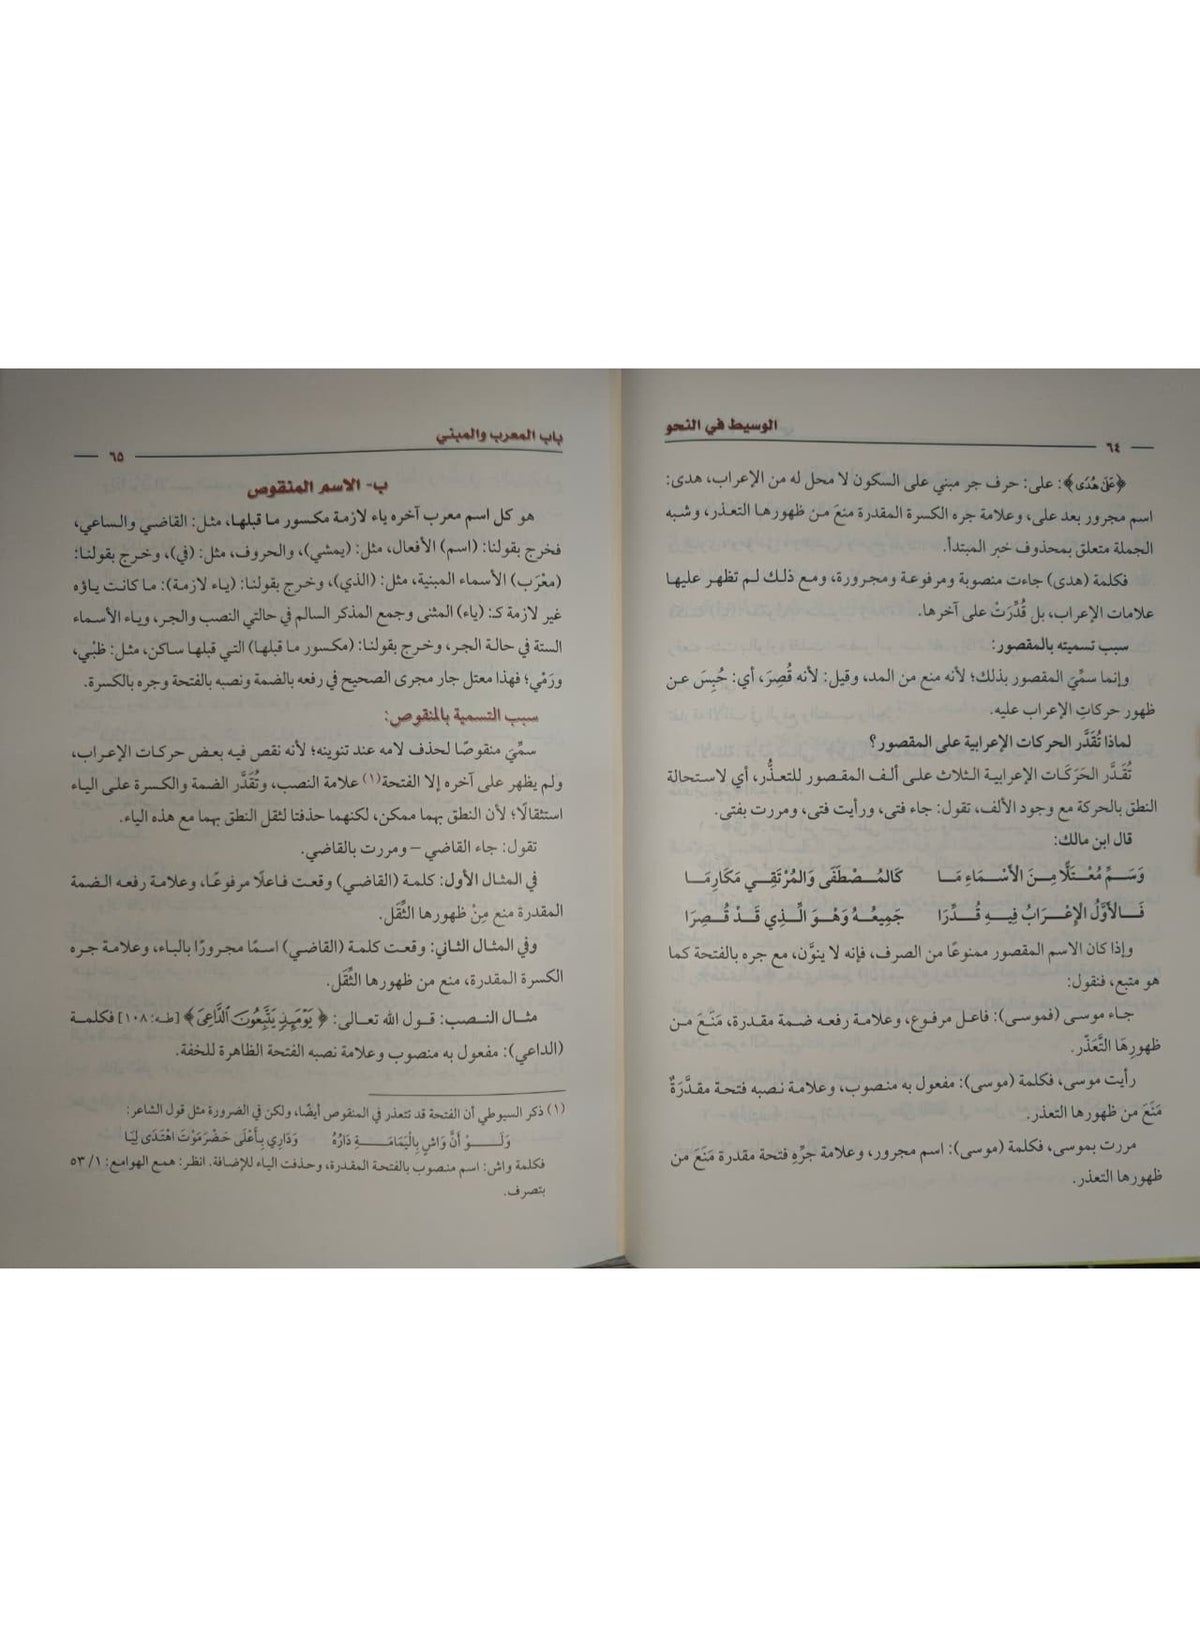 الوسيط في النحو
٦٤
﴿عَلَىٰ هُدًى﴾: على: حرف جر مبني على السكون لا محل له من الإعراب، هدى:
اسم مجرور بعد على، وعلامة جره الكسرة المقدرة منعَ مـن ظهورهـا التعـذر، وشبه
الجملة متعلق بمحذوف خبر المبتدأ.
فكلمة (هدى) جاءت منصوبة ومرفوعة ومجرورة، ومع ذلـك لـم تظهر عليهـا
علامات الإعراب، بل قُدِّرَتْ على آخرها.
سبب تسميته بالمقصور:
وإنما سمِّيَ المقصور بذلك؛ لأنه منع من المد، وقيل: لأنه قُصِرَ، أي: حُبِسَ عـن
ظهور حركاتِ الإعراب عليه.
لماذا تُقَدَّر الحركات الإعرابية على المقصور؟
تُقَدَّر الحَرَكَات الإعرابيـة الـثلاث علـى ألـف المقـصور للتعـذُّر، أي لاستحالة
النطق بالحركة مع وجود الألف، تقول: جاء فتى، ورأيت فتى، ومررت بفتى.
قال ابن مالك:
وَسَـمِّ مُعْتَـلًّا مِـنَ الْأَسْـمَاءِ مَـا كَالمُـصْطَفَى وَالمُرْتَقِـي مَكَارِمَـا
فَـالأَوَّلُ الإِعْـرَابُ فِيـهِ قُـدِّرَا جَمِيعُـهُ وَهْـوَ الَّـذِي قَـدْ قُـصِرَا
وإذا كان الاسم المقصور ممنوعًا من الصرف، فإنه لا ينوَّن، مع جره بالفتحة كما
هو متبع، فنقول:
جـاء موسـى (فموسى): فاعـل مرفـوع، وعلامـة رفعـه ضمـة مقـدرة، مَنَـعَ مـن
ظهورِهَا التَّعَذّر.
رأيت موسى، فكلمة (موسى): مفعول به منـصوب، وعلامـة نـصبه فتحـة مقـدَّرَةٌ
مَنَعَ من ظهورها التعذر.
مررت بموسى، فكلمة (موسى): اسم مجرور، وعلامة جَرِّهِ فتحة مقدرة مَنَعَ من
ظهورها التعذر.
باب المعرب والمبني
٦٥
ب- الاسم المنقوص
هو كل اسم معرب آخره ياء لازمـة مكـسور مـا قبلهـا، مثـل: القاضـي والـساعي،
فخرج بقولنا: (اسم) الأفعال، مثل: (يمشي)، والحروف، مثل: (في)، وخـرج بقولنـا:
(معْرَب) الأسماء المبنية، مثل: (الذي)، وخرج بقولنا: (ياء لازمة): ما كانت ياؤه
غير لازمة كـ: (ياء) المثنى وجمع المذكر السالم في حالتي النصب والجر، وياء الأسماء
الستة في حالة الجر، وخرج بقولنا: (مكسور ما قبلها) التي قبلها ساكن، مثـل: ظبْيٍ،
ورَمْيٍ؛ فهذا معتل جار مجرى الصحيح في رفعه بالضمة ونصبه بالفتحة وجره بالكسرة.
سبب التسمية بالمنقوص:
سمِّيَ منقوصًا لحذف لامه عند تنوينه؛ لأنه نقص فيـه بعـض حركـات الإعـراب،
ولم يظهر على آخره إلا الفتحة(١) علامة النصب، وتُقَدَّر الضمة والكسرة علـى اليـاء
استثقالًا؛ لأن النطق بهما ممكن، لكنهما حذفتا لثقل النطق بهما مع هذه الياء.
تقول: جاء القاضي – ومررت بالقاضي.
في المثال الأول: كلمـة (القاضـي) وقعت فـاعلًا مرفوعًـا، وعلامـة رفعـه الـضمة
المقدرة منع مِنْ ظهورها الثِّقَل.
وفي المثال الثاني: وقعـت كلمـة (القاضـي) اسـمًا مجـرورًا باليـاء، وعلامـة جـره
الكسرة المقدرة، منع من ظهورها الثِّقَل.
مثـال النـصب: قـول الله تعـالى: ﴿ يَوْمَئِذٍ يَتَّبِعُونَ ٱلدَّاعِىَ ﴾ [طـه: ١٠٨] فكلمـة
(الداعي): مفعول به منصوب وعلامة نصبه الفتحة الظاهرة للخفة.
(١) ذكر السيوطي أن الفتحة قد تتعذر في المنقوص أيضًا، ولكن في الضرورة مثل قول الشاعر:
وَلَـــوْ أَنَّ وَاشٍ بِالْيَمَامَـــةِ دَارُهُ وَدَارِي بِـأَعْلَى حَضْرَمَوْتَ اهْتَدَى لِيَا
فكلمة واش: اسم منصوب بالفتحة المقدرة، وحذفت الياء للإضافة. انظـر: همـع الهوامـع: ٥٣/١
بتصرف.